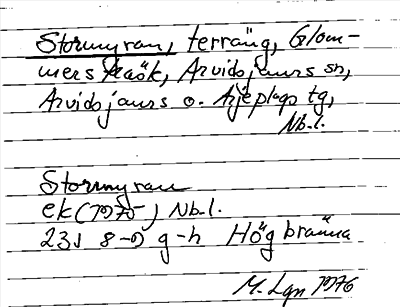 Stormyran, terräng, Glom-
mersträsk, Arvidsjaurs sn,
Arvidsjaurs o. Arjeplogs tg,
Nb.l.
Stormyran
ek (1975) Nb.l.
23J 8-9 g-h Högbränna
M. Lgn 1976